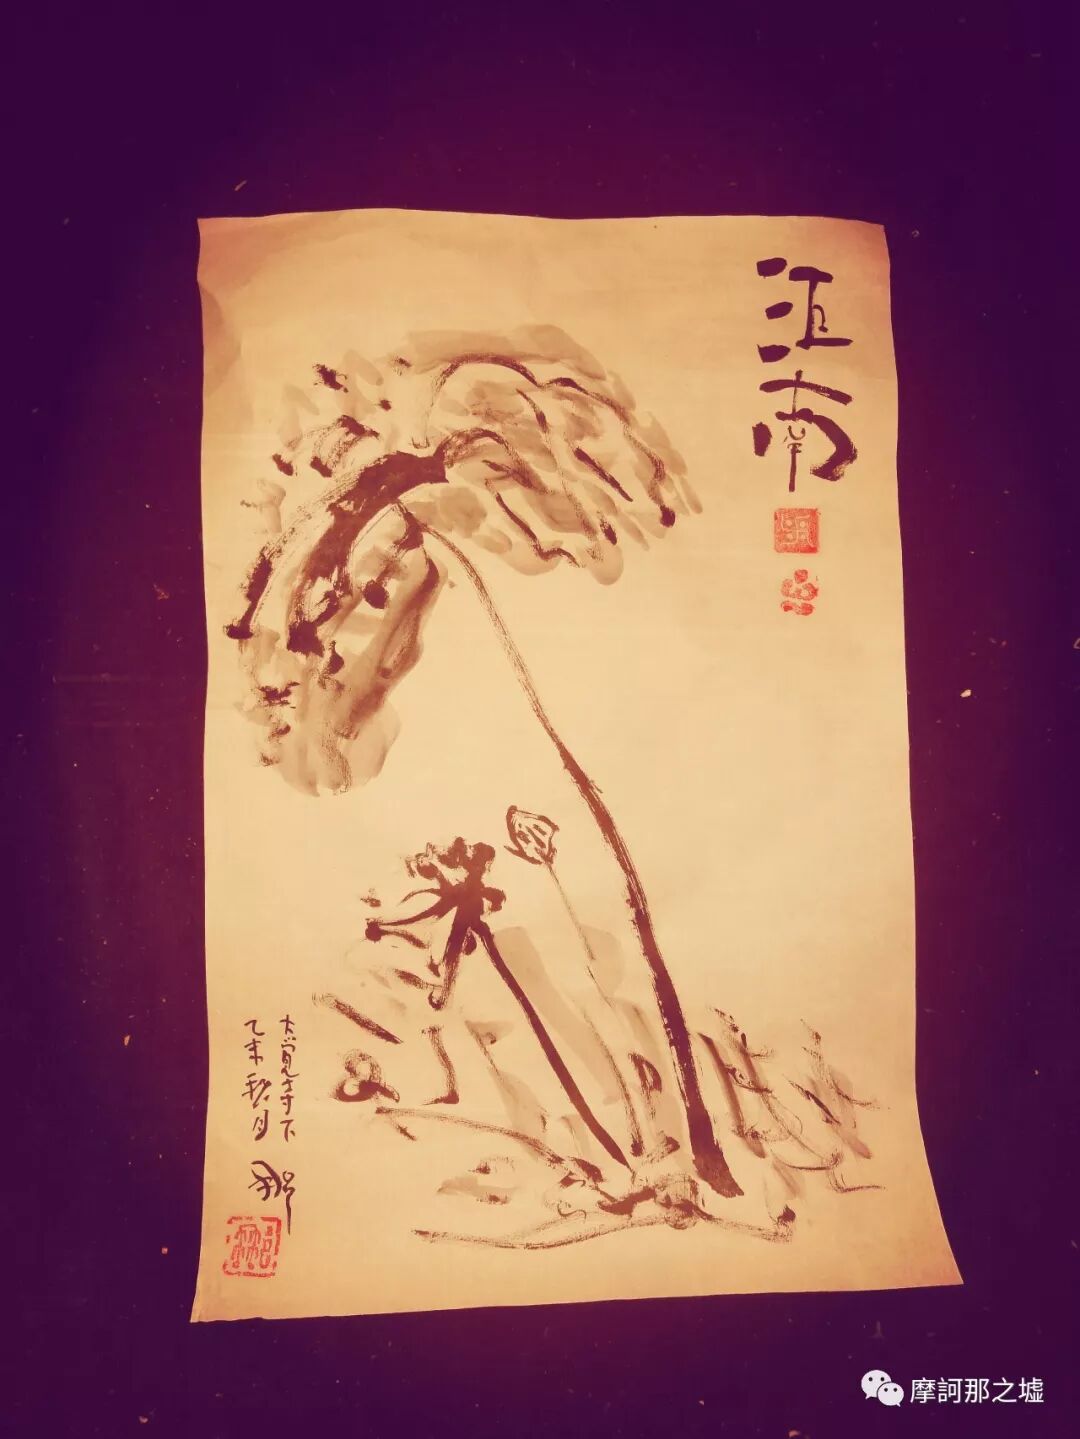 江南
大觉寺下
乙未秋月
那
摩訶那之墟